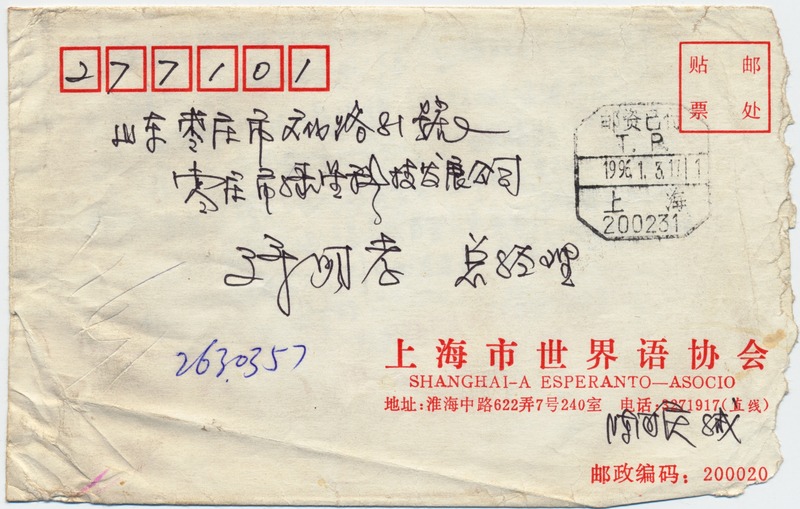 277101
贴 邮
票 处
邮资已付
T. P.
1996.1.3.17
上海
200231
山东枣庄市文化路81号
枣庄市绿生科技发展公司
孙明孝 总经理
2630357
上海市世界语协会
SHANGHAI-A ESPERANTO—ASOCIO
地址:淮海中路622弄7号240室 电话:3271917(直线)
邮政编码:200020